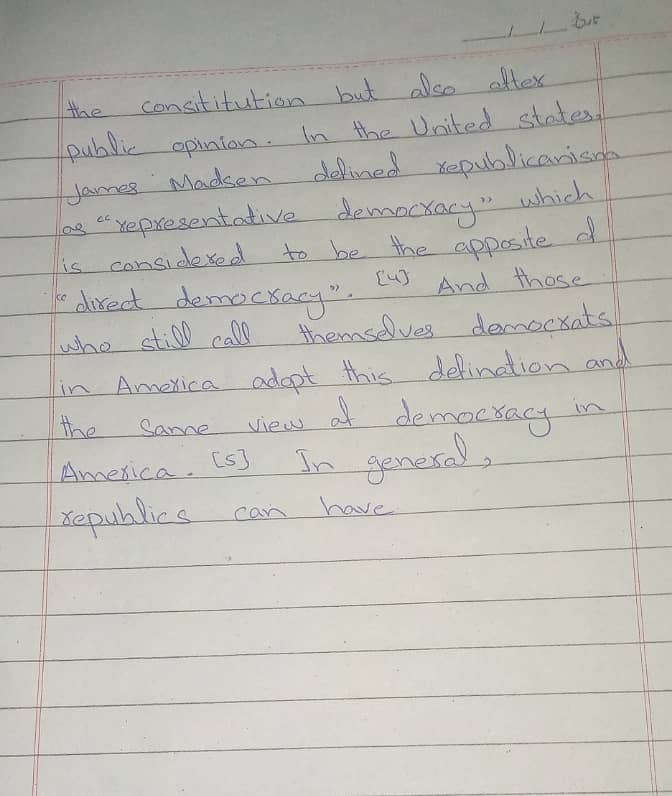 the consititution but also alter
public opinion. In the United states,
James Madsen defined republicanism
as "representative democracy" which
is considered to be the apposite of
"direct democracy". [4] And those
who still call themselves democrats
in America adopt this defination and
the same view of democracy in
America. [5] In general,
republics can have